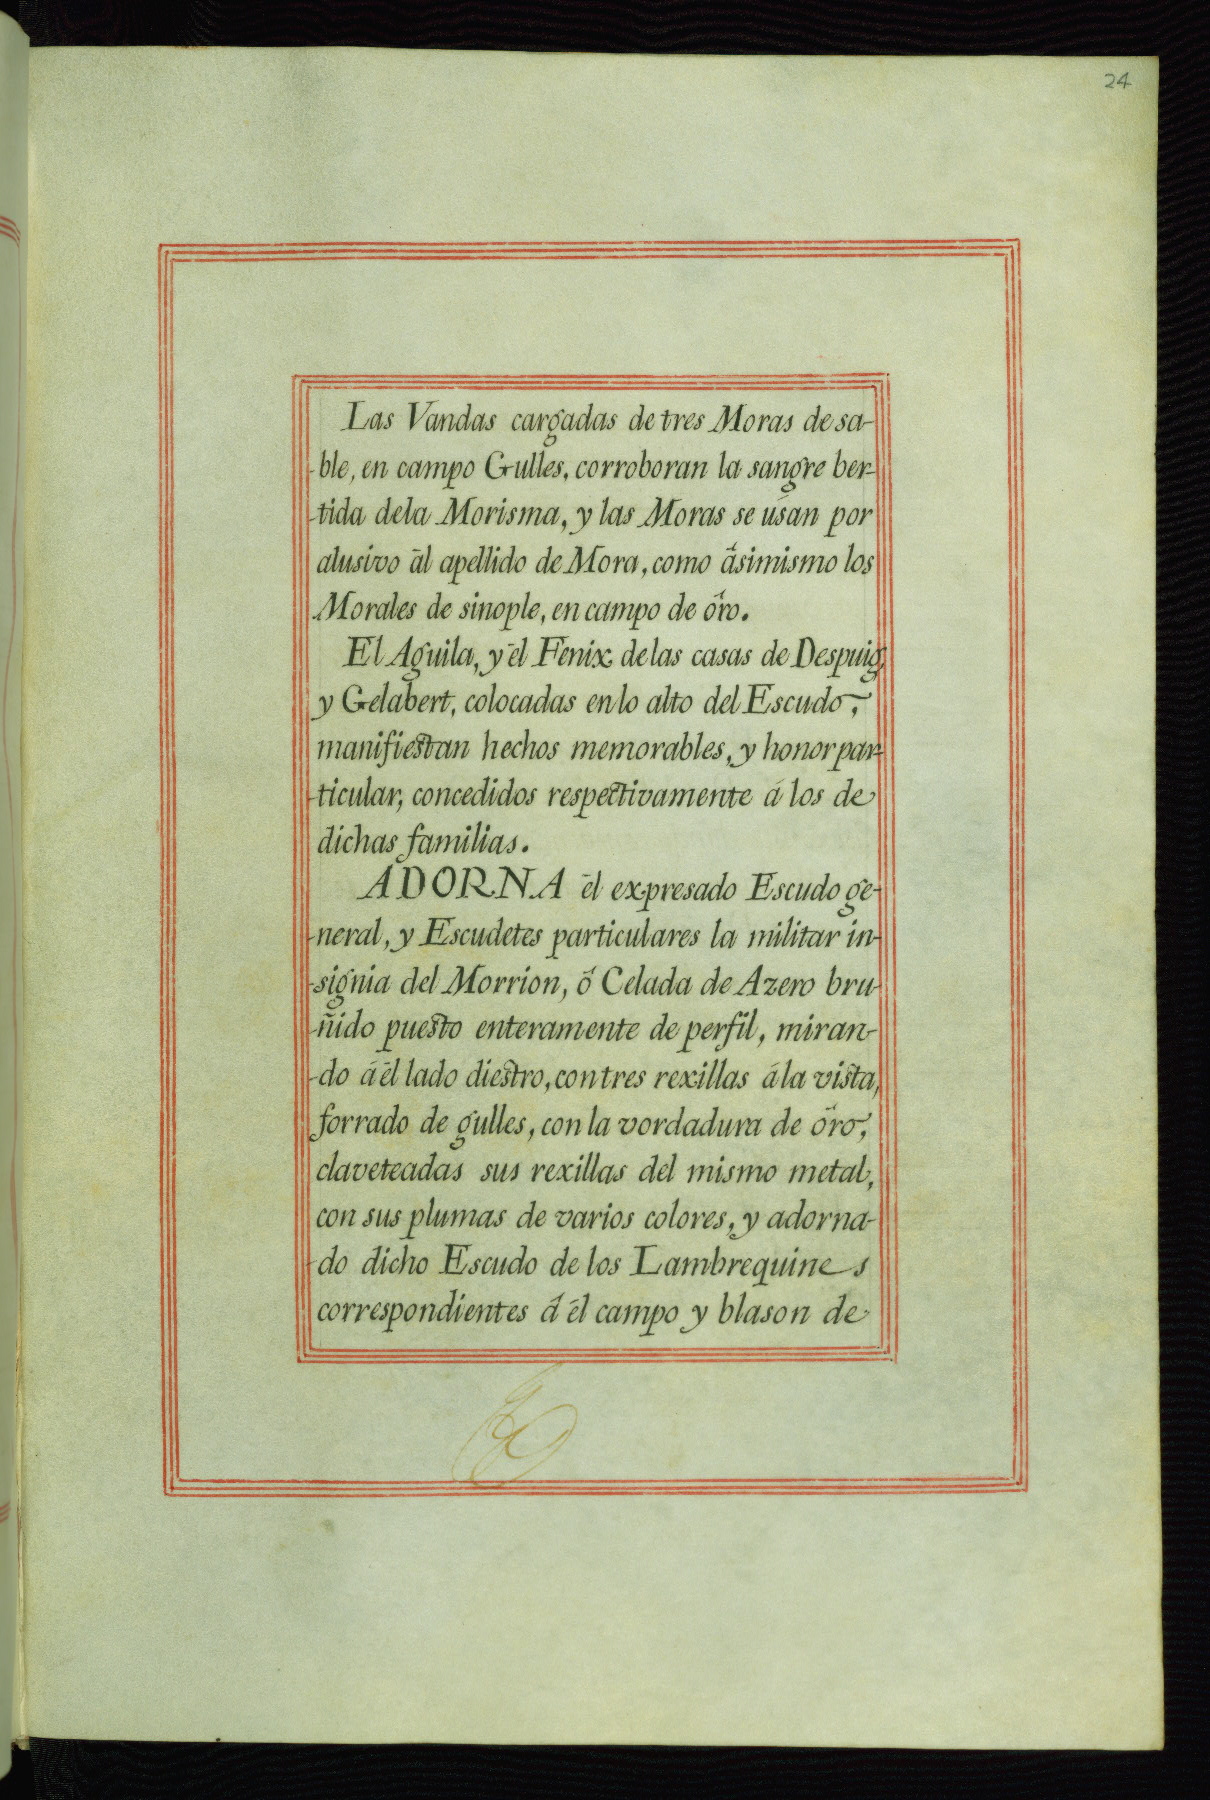 24
Las Vandas cargadas de tres Moras de sa-
-ble, en campo Gulles, corroboran la sangre ber-
-tida dela Morisma, y las Moras se usan por
alusivo ál apellido de Mora, como ásimismo los
Morales de sinople, en campo de óro.
El Aguila, y él Fenix de las casas de Despuig,
y Gelabert, colocadas en lo alto del Escudo,
manifiestan hechos memorables, y honor par-
-ticular, concedidos respectivamente á los de
dichas familias.
ADORNA él expresado Escudo ge-
-neral, y Escudetes particulares la militar in-
-signia del Morrion, ó Celada de Azero bru-
-ñido puesto enteramente de perfil, miran-
-do á él lado diestro, con tres rexillas á la vista,
forrado de gulles, con la vordadura de óro,
claveteadas sus rexillas del mismo metal,
con sus plumas de varios colores, y adorna-
-do dicho Escudo de los Lambrequines
correspondientes á él campo y blason de